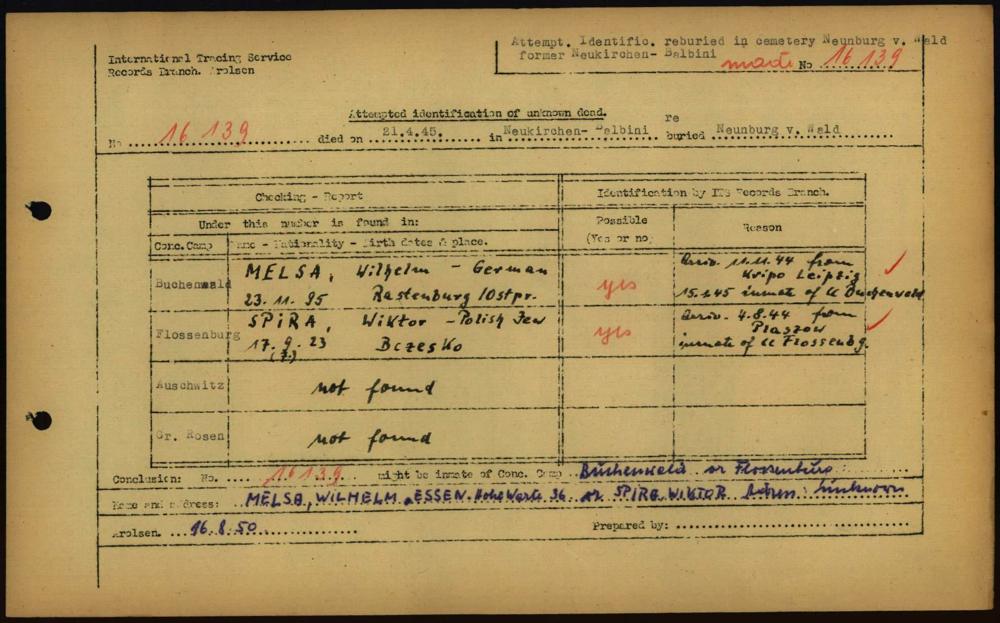 International Tracing Service
Records Branch. Arolsen
Attempt. Identific. reburied in cemetery Neunburg v. Wald
former Neukirchen- Balbini
made No 16 139
Attempted identification of unknown dead.
No 16 139 died on 21.4.45. in Neukirchen- Balbini re buried Neunburg v. Wald
Checking - Report
Identification by ITS Records Branch.
Under this number is found in:
Possible
(Yes or no)
Reason
Conc. Camp Name - Nationality - Birth dates & place.
Buchenwald MELSA, Wilhelm - German
23.11.95 Rastenburg/Ostpr.
yes
Arriv. 11.11.44 from
Kripo Leipzig
15.1.45 inmate of CC Buchenwald
Flossenburg SPIRA, Wiktor - Polish Jew
17.9.23 Bczesko
(7.)
yes
Arriv. 4.8.44 from
Plaszow
inmate of CC Flossenbg.
Auschwitz not found
Gr. Rosen not found
Conclusion: No. 16139 might be inmate of Conc. Camp Buchenwald or Flossenburg
Name and address: MELSA, WILHELM, ESSEN, Hohe Warte 36 or SPIRA WIKTOR Adress: unknown
Arolsen. 16.8.50
Prepared by: